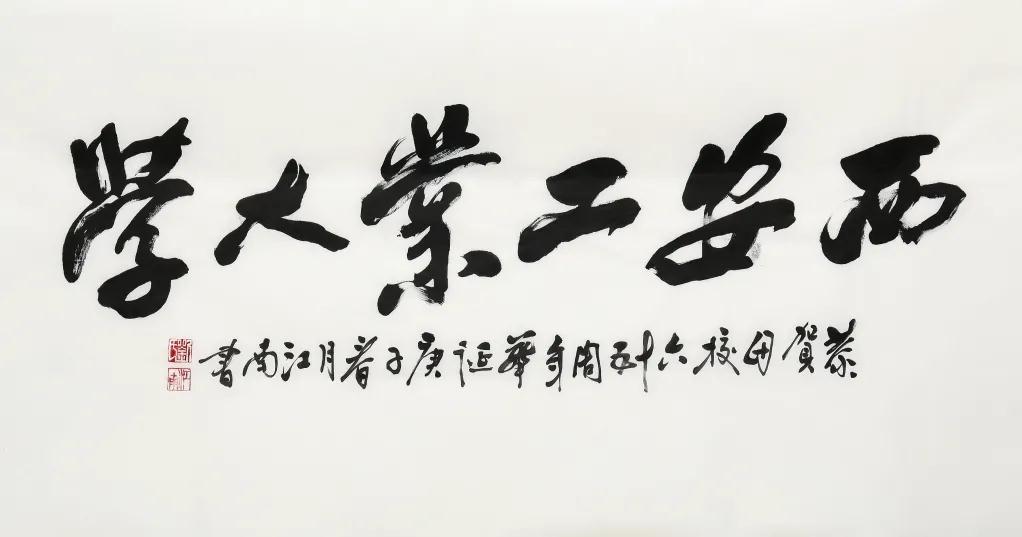 西安工業大學
恭賀母校六十五周年華誕庚子春月江南書